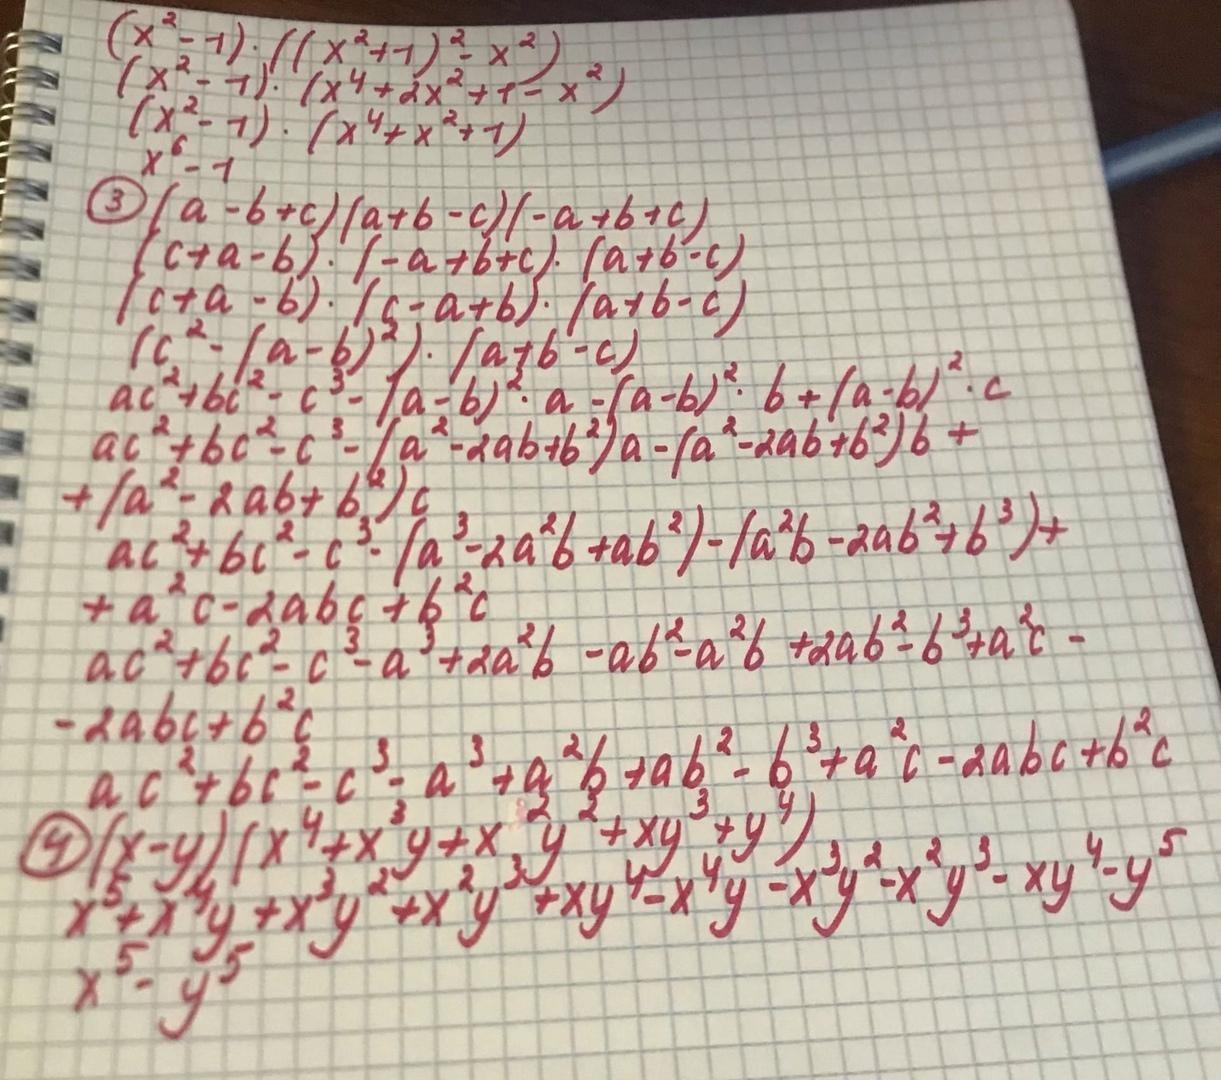 (x²-1)·((x²+1)²-x²)
(x²-1)·(x⁴+2x²+1-x²)
(x²-1)·(x⁴+x²+1)
x⁶-1
③ (a-b+c)(a+b-c)(-a+b+c)
(c+a-b)·(-a+b+c)·(a+b-c)
(c+a-b)·(c-a+b)·(a+b-c)
(c²-(a-b)²)·(a+b-c)
ac²+bc²-c³-(a-b)²·a-(a-b)²·b+(a-b)²·c
ac²+bc²-c³-(a²-2ab+b²)a-(a²-2ab+b²)b+
+(a²-2ab+b²)c
ac²+bc²-c³-(a³-2a²b+ab²)-(a²b-2ab²+b³)+
+a²c-2abc+b²c
ac²+bc²-c³-a³+2a²b-ab²-a²b+2ab²-b³+a²c-
-2abc+b²c
ac²+bc²-c³-a³+a²b+ab²-b³+a²c-2abc+b²c
④ (x-y)(x⁴+x³y+x²y²+xy³+y⁴)
x⁵+x⁴y+x³y²+x²y³+xy⁴-x⁴y-x³y²-x²y³-xy⁴-y⁵
x⁵-y⁵